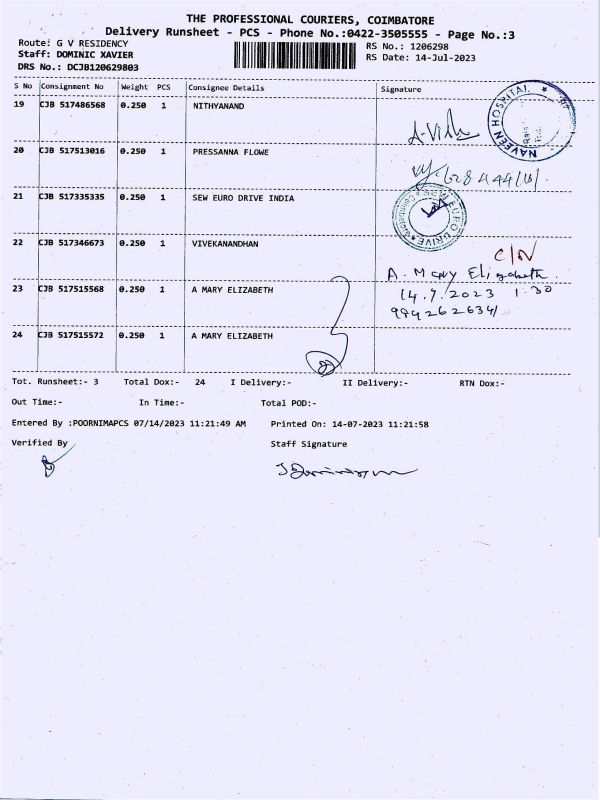 THE PROFESSIONAL COURIERS, COIMBATORE
Delivery Runsheet - PCS - Phone No.:0422-3505555 - Page No.:3
Route: G V RESIDENCY
RS No.: 1206298
Staff: DOMINIC XAVIER
RS Date: 14-Jul-2023
DRS No.: DCJB120629803
S No Consignment No Weight PCS Consignee Details Signature
19 CJB 517486568 0.250 1 NITHYANAND
NAVEEN HOSPITAL
20 CJB 517513016 0.250 1 PRESSANNA FLOWE
21 CJB 517335335 0.250 1 SEW EURO DRIVE INDIA
SEW EURO DRIVE
22 CJB 517346673 0.250 1 VIVEKANANDHAN
C/N
A. Mary Elizabeth
23 CJB 517515568 0.250 1 A MARY ELIZABETH
14.7.2023 1.30
24 CJB 517515572 0.250 1 A MARY ELIZABETH
Tot. Runsheet:- 3 Total Dox:- 24 I Delivery:- II Delivery:- RTN Dox:-
Out Time:- In Time:- Total POD:-
Entered By :POORNIMAPCS 07/14/2023 11:21:49 AM Printed On: 14-07-2023 11:21:58
Verified By Staff Signature